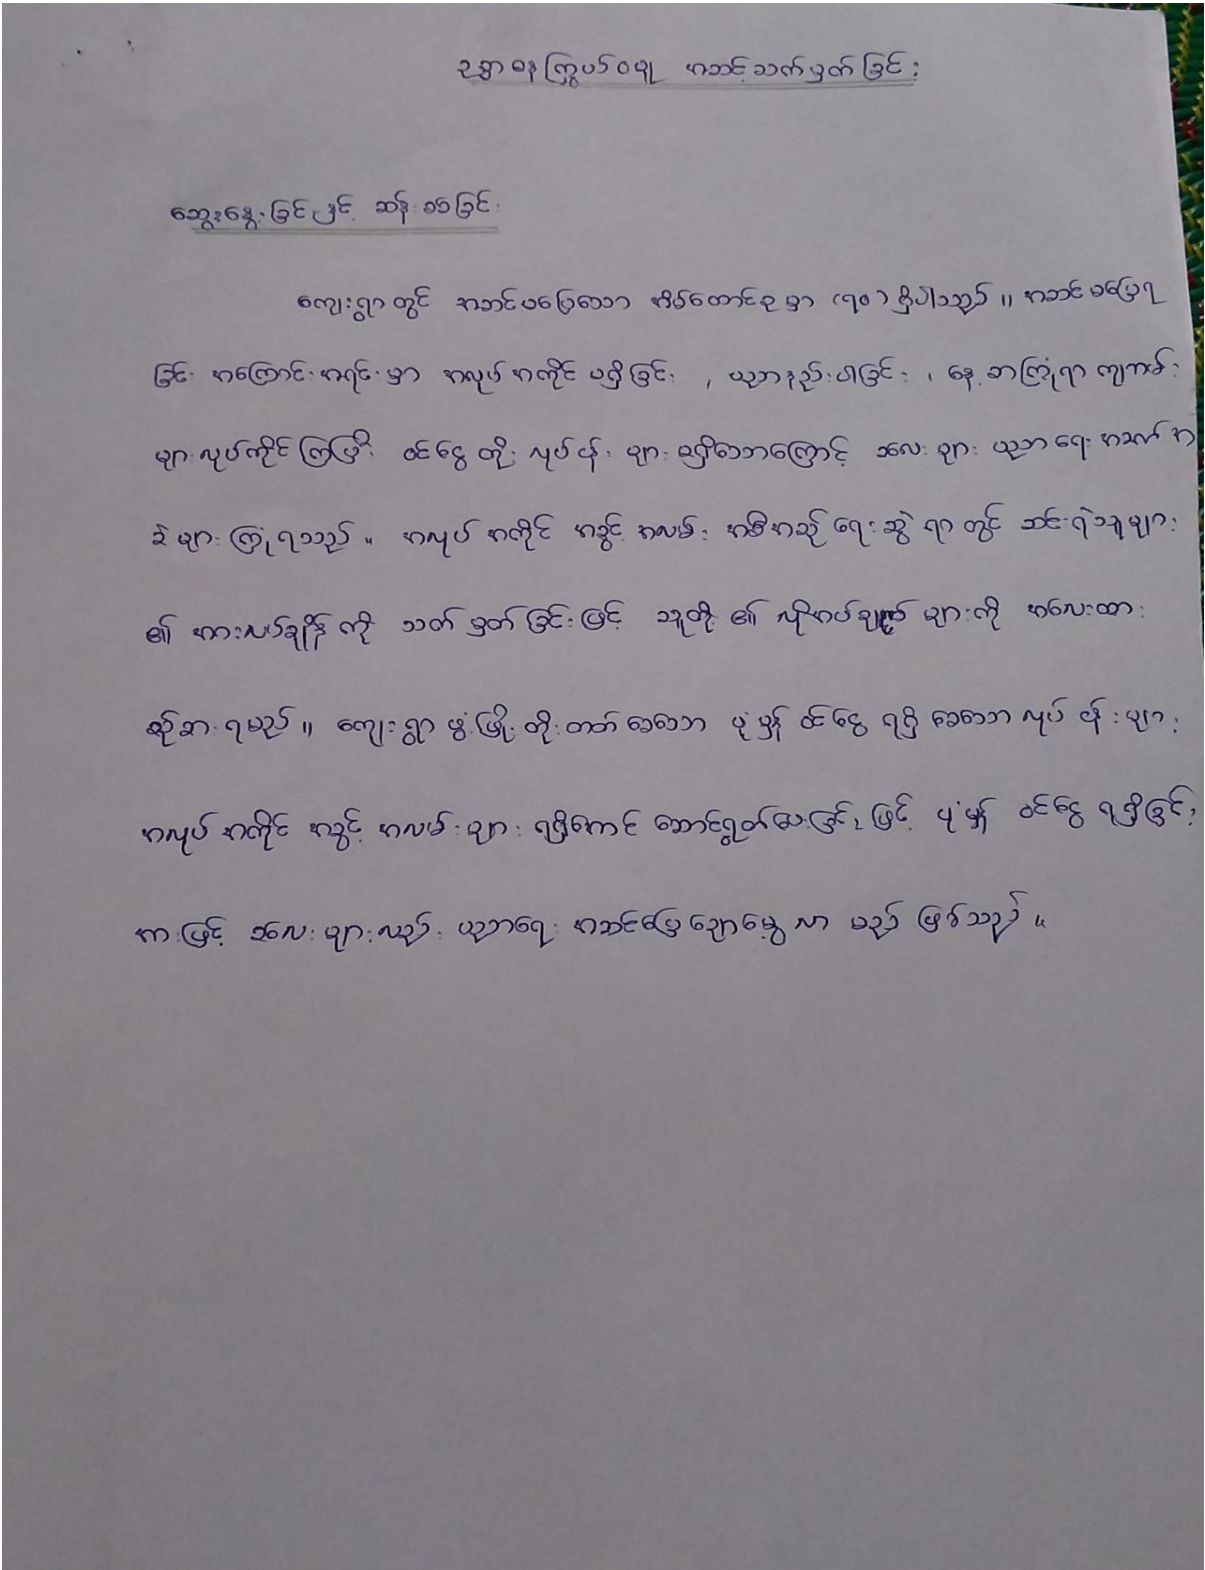 ဥစ္စာဓနကြွယ်ဝမှု အဆင့်သတ်မှတ်ခြင်း
ဆွေးနွေးခြင်းနှင့် ဆန်းစစ်ခြင်း
ကျေးရွာတွင် အဆင်မပြေသော အိမ်ထောင်စုမှာ (၅၀) ရှိပါသည်။ အဆင်မပြေရ
ခြင်း အကြောင်းအရင်းမှာ အလုပ်အကိုင် မရှိခြင်း ၊ ပညာနည်းပါးခြင်း ၊ နေ့စား ကြုံရာကျပန်း
များလုပ်ကိုင်ကြပြီး ဝင်ငွေတိုး လုပ်ငန်းများ မရှိသောကြောင့် ကလေးများ ပညာရေး အခက်အ
ခဲများ ကြုံရသည်။ အလုပ်အကိုင် အခွင့်အလမ်း အစီအစဉ်ရေးဆွဲရာတွင် ဆင်းရဲသူများ
၏ အားလပ်ချိန်ကို သတ်မှတ်ခြင်းဖြင့် သူတို့၏ လိုအပ်ချက်များကို အလေးထား
စဉ်းစားရမည်။ ကျေးရွာဖွံ့ဖြိုးတိုးတတ်စေသော ပုံမှန်ဝင်ငွေရရှိစေသော လုပ်ငန်းများ
အလုပ်အကိုင် အခွင့်အလမ်းများ ရရှိအောင် ဆောင်ရွတ်ပေးခြင်းဖြင့် ပုံမှန် ဝင်ငွေရရှိခြင်း
အားဖြင့် ကလေးများလည်း ပညာရေး အဆင်ပြေချောမွေ့လာမည် ဖြစ်သည်။